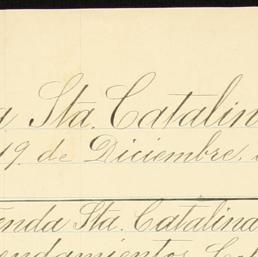 a Sta. Catalin
19. de Diciembre.
enda Sta. Catalina
endamientos